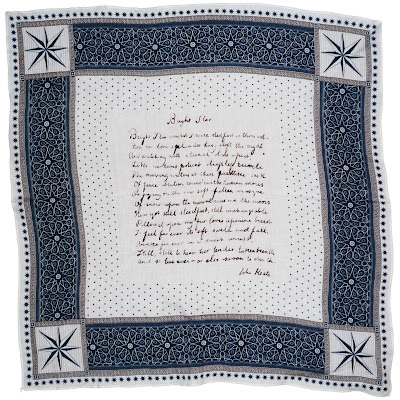 Bright Star
Bright Star would I were stedfast as thou art
Not in lone splendor hung aloft the night
And watching with eternal lids apart
Like natures patient sleepless
The moving waters at their priestlike task
Of pure ablution round earth's human shores
Or gazing on the new soft fallen
Of snow upon the mountains and the moors
No yet still stedfast, still unchangeable
Pillow'd upon my fair love's ripening breast
To feel for ever its soft swell and fall,
Awake for ever in a sweet unrest
Still, still to hear her tender taken breath
And so live ever or else swoon to death
John Keats